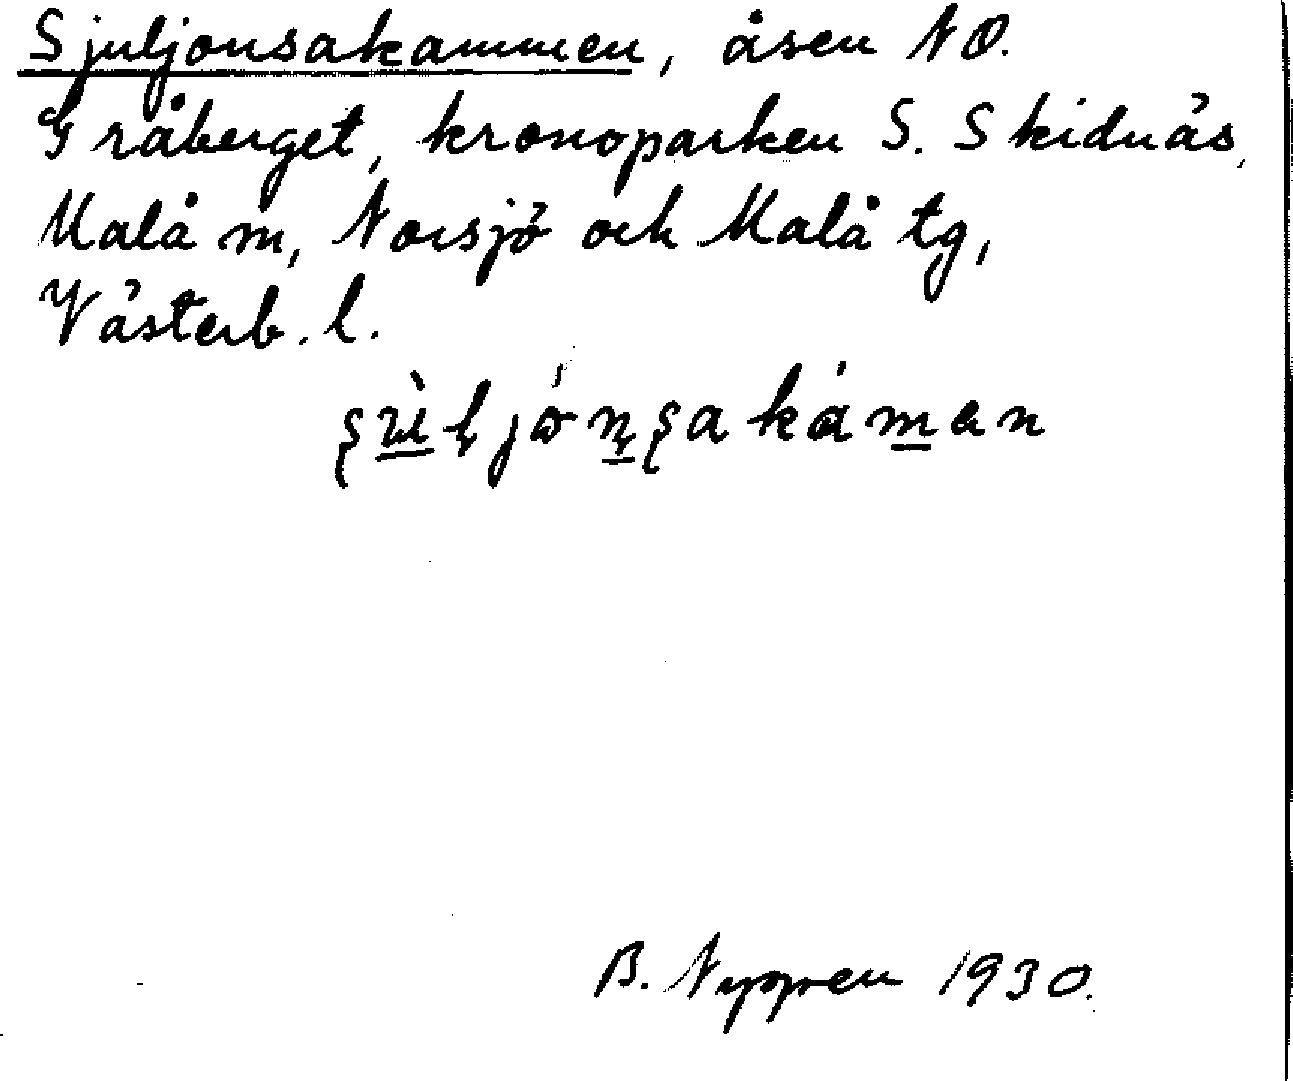 Sjuljonsakammen, åsen NO.
Gråberget, kronoparken S. Skidnäs,
Malå m, Norsjö och Malå tg,
Västerb. l.
B. Nygren 1930.